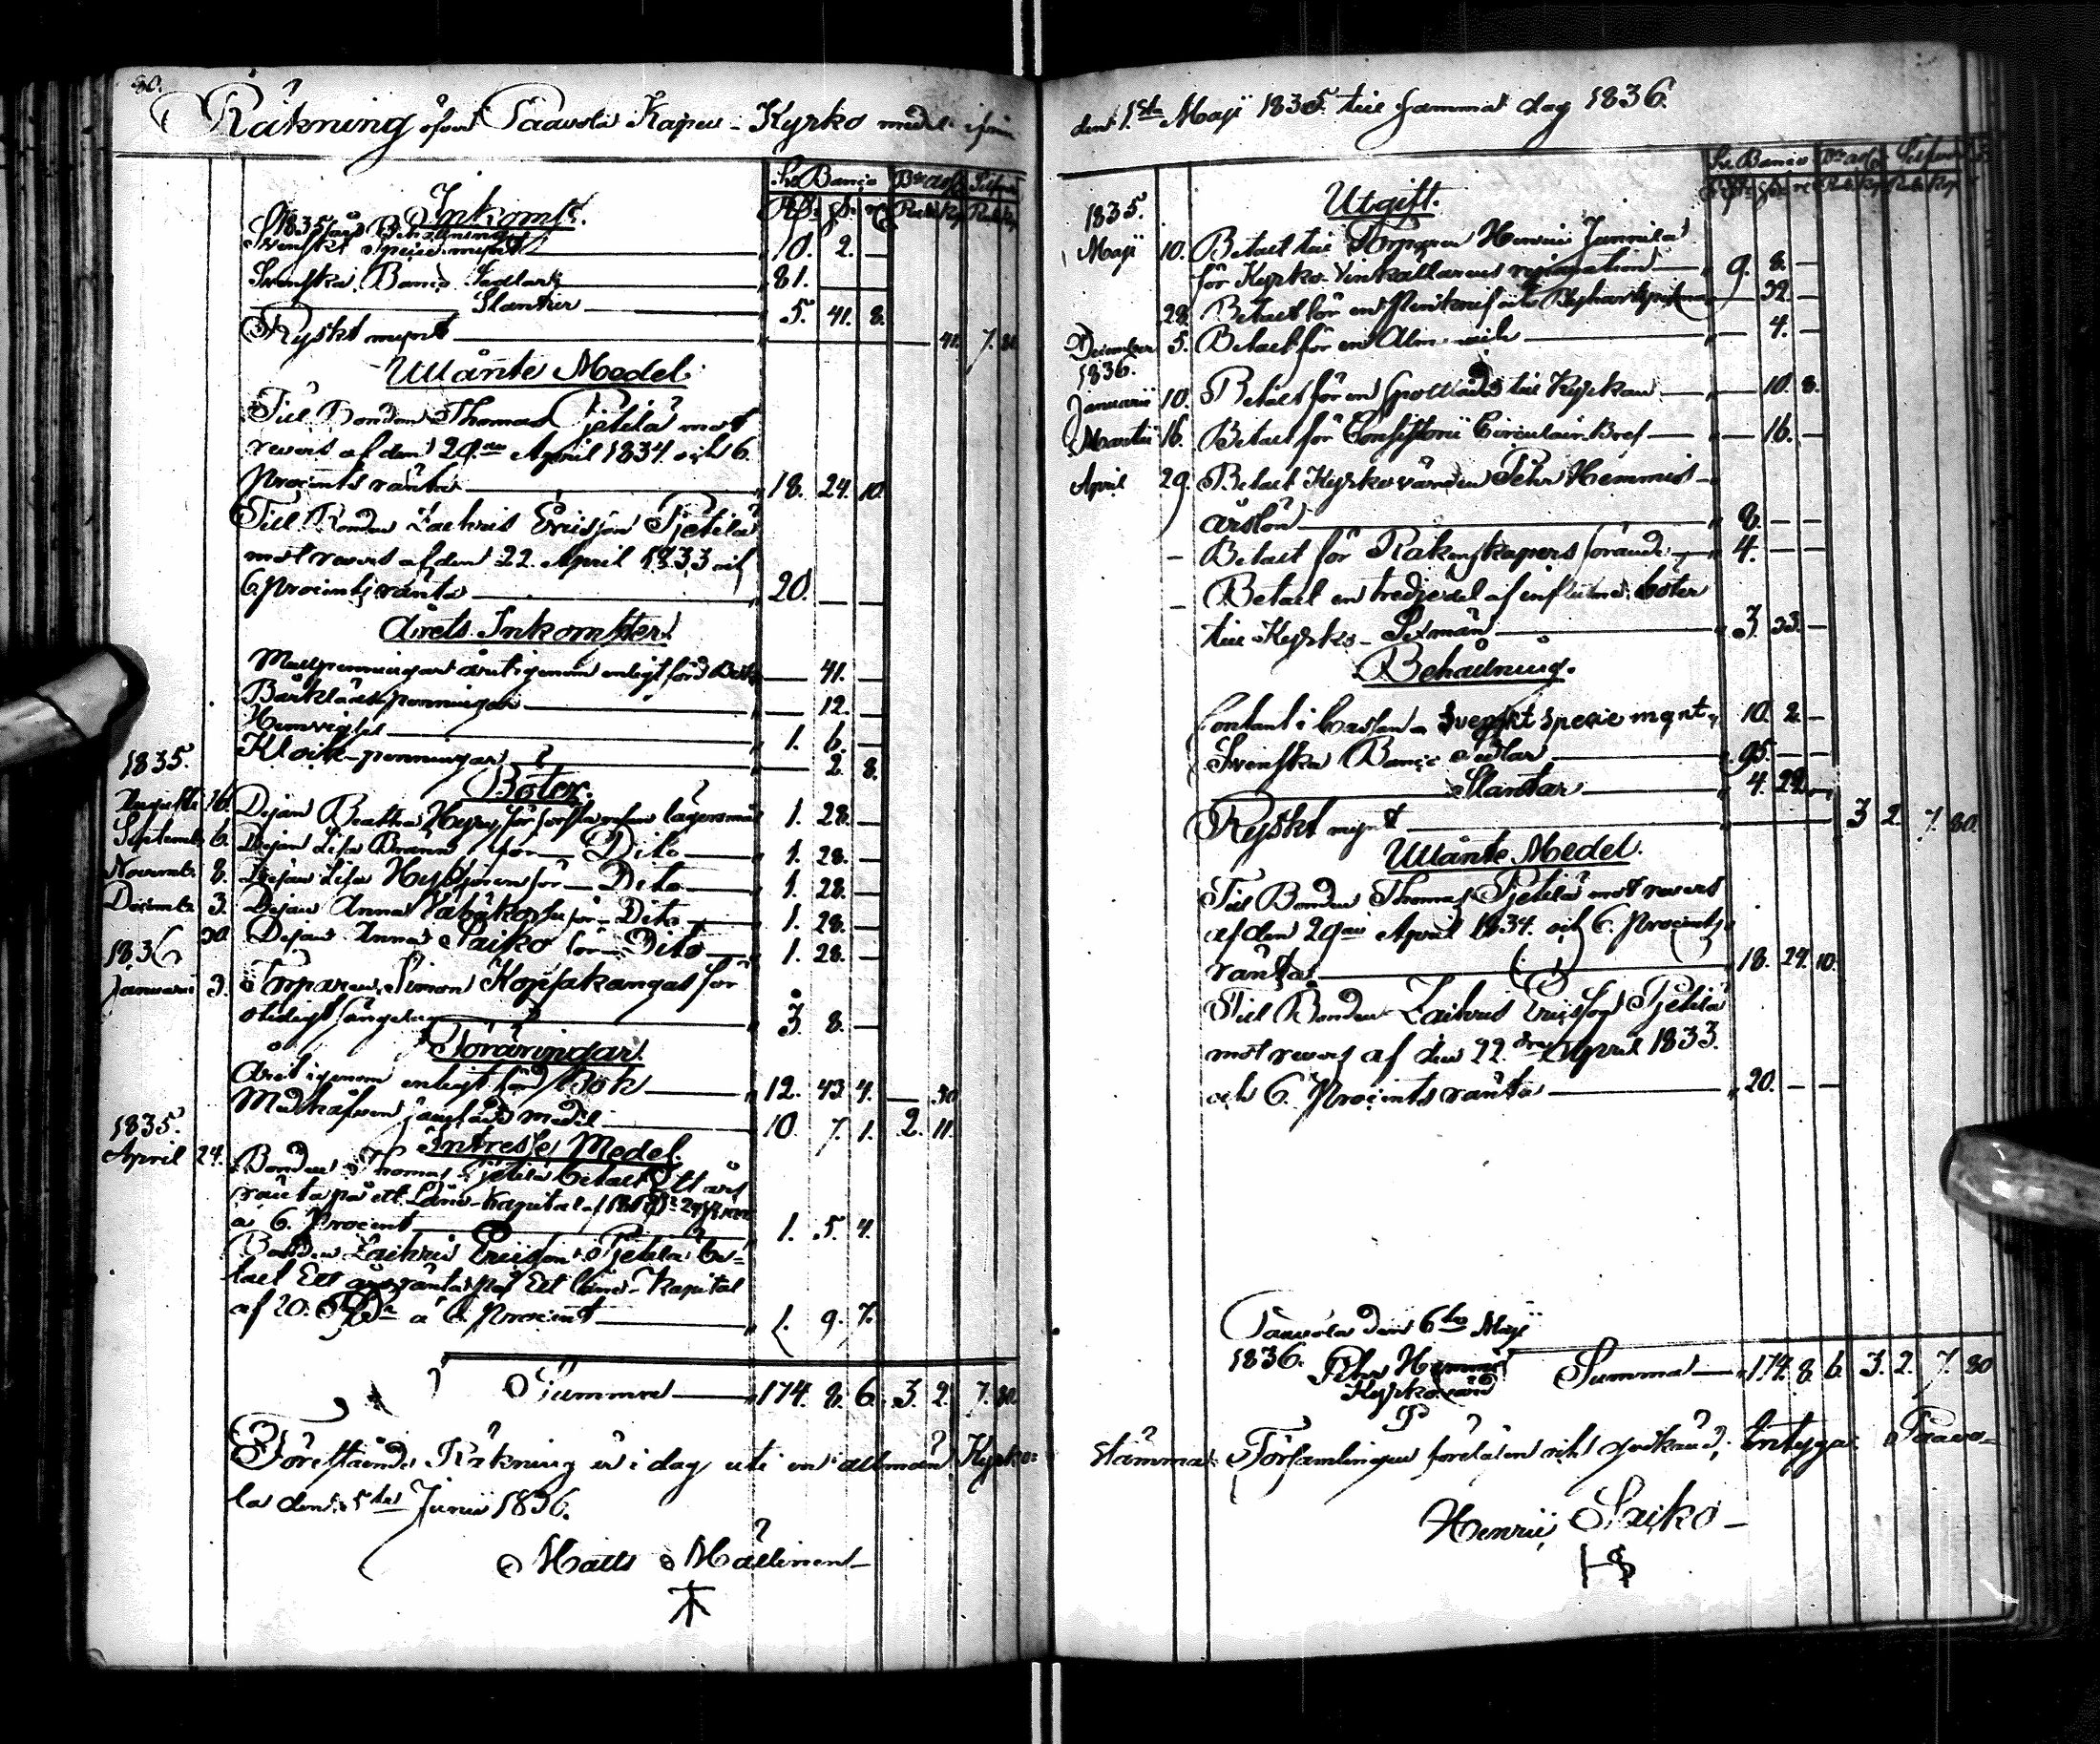 90.
Räkning öfver Paavola Kapell-Kyrko medel ifrån
Sv. Banco Bco ass. Silfver
Rd. s. r. Rub. Kop. Rub. Kop.
Inkomst.
1835 års Behållning
Svenskt specie mynt 10. 2. —
Svenska Banco Sedlar 81. — —
Slantar 5. 41. 8.
Ryskt mynt 41. 7. 80.
Utlånte Medel.
Till Bonden Thomas Pjetilä mot
revers af den 29.de April 1834. och 6.
Procents ränta 18. 24. 10.
Till Bonden Zachris Ericsson Pjetilä
mot revers af den 22. April 1833 och
6. Procents ränta 20. — —
Årets Inkomster.
året igenom enligt förd Bok — 41. —
Bårklädespenningar — 12. —
1. 6. —
Klock-penningar — 2. 8.
1835. Böter.
Augusti 16. Pejan Beatha Hyry för första resan lägersmål 1. 28. —
September 6. Pejan Lisa Brann för Dito 1. 28. —
November 8. Pejan Lisa för Dito 1. 28. —
December 3. Pejan Anna för Dito 1. 28. —
20. Pejan Anna Saiko för Dito 1. 28. —
1836.
Januarii 3. Torparen Simon Kopsakangas för
otidigt sängelag 3. 8. —
Föräringar.
Året igenom enligt förd Bok 12. 43. 4. — 30.
Med håfven samlade medel 10. 7. 1. 2. 11.
1835. Intresse Medel.
April 24. Bonden Thomas Pjetilä betalt Ett års
ränta på ett Låne-Kapital af 18 Rd. 24 s.
á 6. Procent 1. 5. 4.
Bonden Zachris Ericsson Pjetilä be-
talt Ett års ränta på Ett Låne-Kapital
af 20. Rd. á 6. Procent 1. 9. 7.
Summa 174. 8. 6. 3. 2. 7. 80.
Förestående Räkning är i dag uti en allmän Kyrko-
la den 5te Junii 1836.
Matts Mällinen
den 1sta Maji 1835. till samma dag 1836.
Sv. Banco Bco ass. Silfver
Rd. s. r. Rub. Kop. Rub. Kop.
1835. Utgift.
Maji 10. Betalt till Torparen Henric Junnila
för Kyrko-Vinkällarens reparation 9. 8. —
28. Betalt för en — 32. —
December 5. Betalt för en — 4. —
1836.
Januarii 10. Betalt för en till Kyrkan — 10. 8.
Martii 16. Betalt för Consistorii Circulair Bref — 16. —
April 29. Betalt Kyrkovärden Pehr Hemmis
årslön 8. — —
— Betalt för Räkenskapers förande 4. — —
— Betalt en tredjedel af influtne böter
till Kyrko-Sexmän 3. 33. —
Behållning.
Contant i Cassan Svenskt specie mynt 10. 2. —
Svenska Banco sedlar 95. — —
Slantar 4. 22. —
Ryskt mynt 3 2. 7. 80.
Utlånte Medel.
Till Bonden Thomas Pjetilä mot revers
af den 29de April 1834. och 6. Procents
ränta 18. 24. 10.
Till Bonden Zachris Ericsson Pjetilä
mot revers af den 22.dra April 1833.
och 6. Procents ränta 20. — —
Paavola den 6te Maji
1836. Pehr Hemmi Summa 174. 8. 6. 3. 2. 7. 80
Kyrkovärd
stämma Församlingen föreläsen och godkänd; Intyga: Paavo-
Henric Saiko
HS